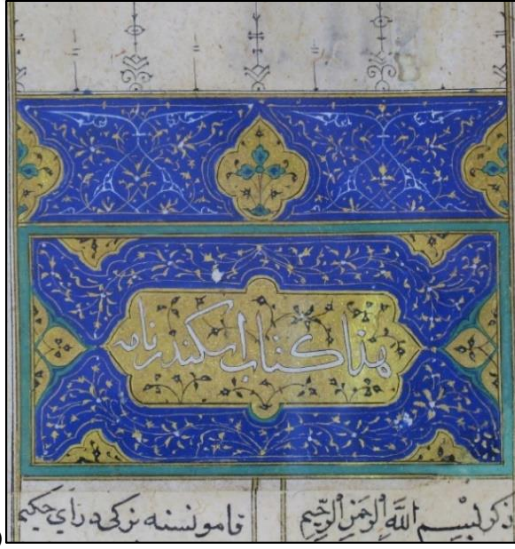 هذا كتاب اسكندرنامه
ذكر بسم الله الرحمن الرحيم قامو نسنه در اي حكيم